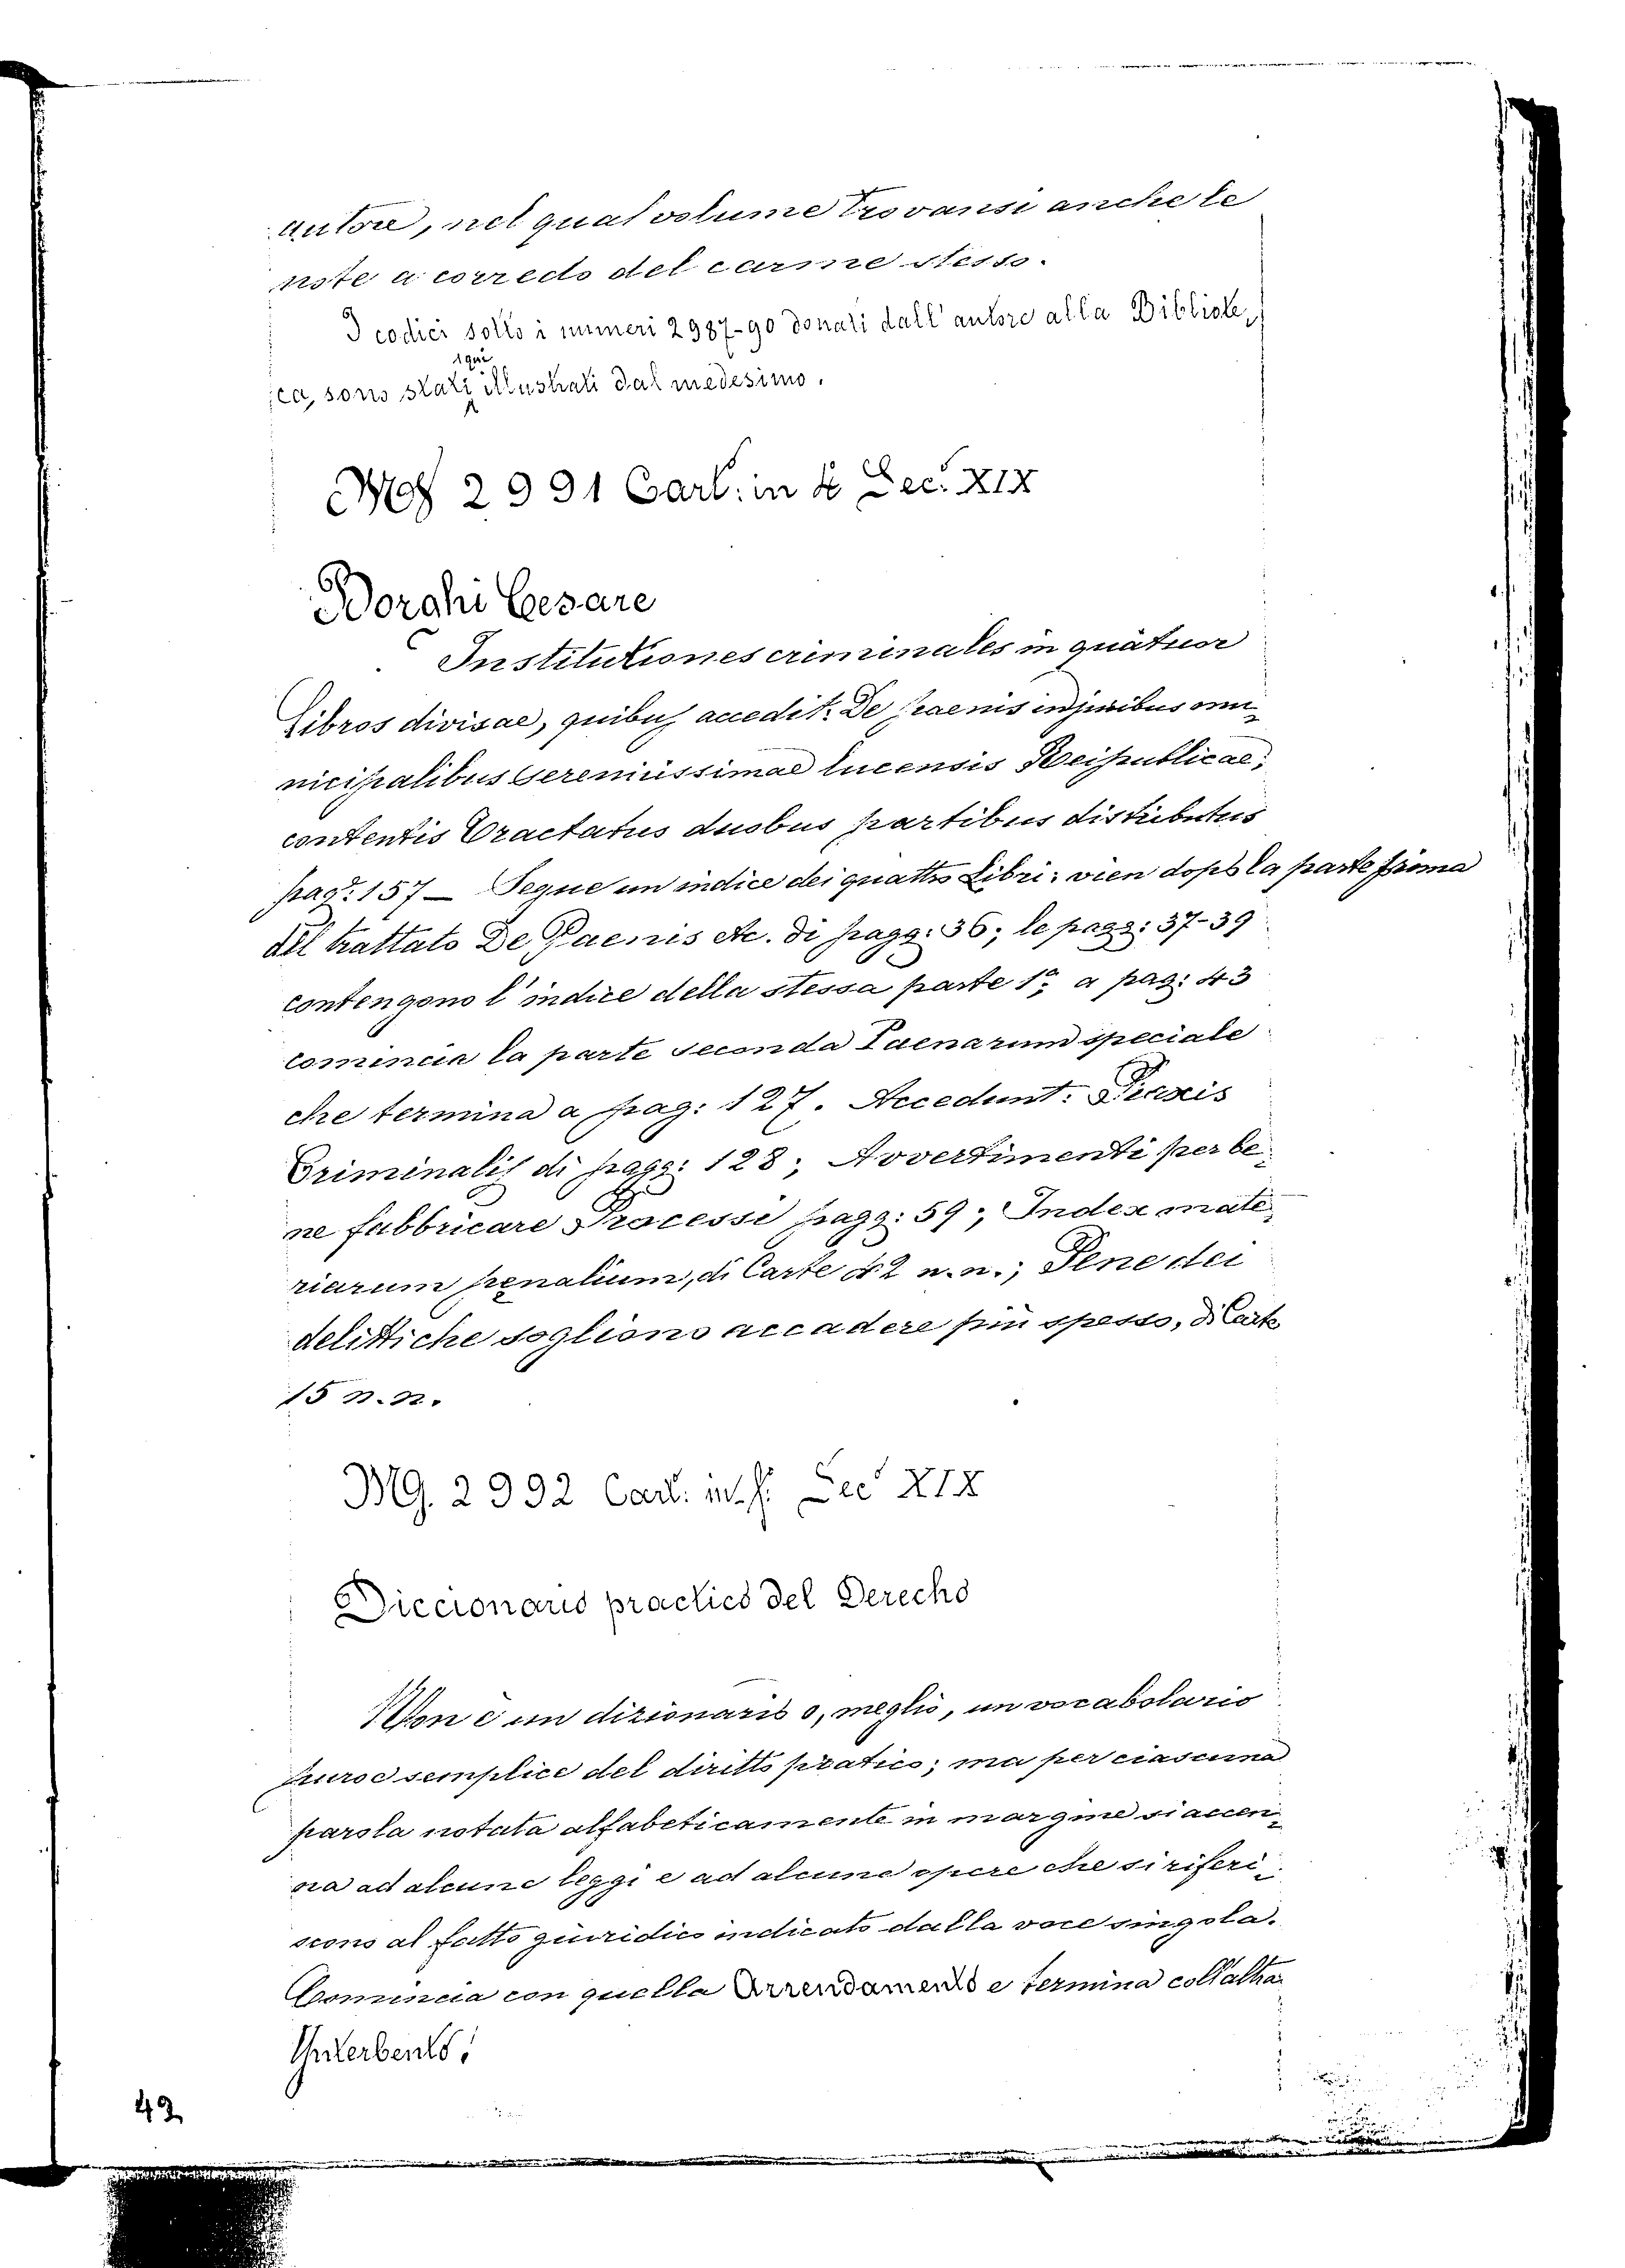 autore, nel qual volume trovansi anche le
note a corredo del carme stesso.
I codici sotto i numeri 2987-90 donati dall'autore alla Bibliote,
qui
ca, sono stati illustrati dal medesimo.
MS 2991 Cart: in 4 Sec. XIX
Borghi Cesare
Institutiones criminales in quatuor
Libros divisae, quibus accedit: De Paenis in juribus mu,
nicipalibus Serenissimae lucensis Reipublicae,
contentis Tractatus duobus partibus distributus
pag: 157 — Segue un indice dei quattro Libri: vien dopo la parte prima
del trattato De Paenis etc. di pagg: 36; le pagg: 37-39
contengono l'indice della stessa parte 1ª; a pag: 43
comincia la parte seconda Paenarum speciale
che termina a pag: 127. Accedunt: Praxis
Criminalis di pagg: 128; Avvertimenti per be,
ne fabbricare Processi pagg: 59; Index mate,
riarum penalium, di Carte 42 n.n.; Pene dei
delitti che sogliono accadere più spesso, di Carte
15 n.n.
MS. 2992 Cart. in f. Sec XIX
Diccionario practico del Derecho
Non è un dizionario o, meglio, un vocabolario
puro e semplice del diritto pratico; ma per ciascuna
parola notata alfabeticamente in margine si accen,
na ad alcune leggi e ad alcune opere che si riferi,
scono al fatto giuridico indicato dalla voce singola.
Comincia con quella Arrendamento e termina coll'altra
Unterbento.
42